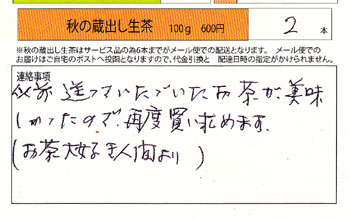 秋の蔵出し生茶 100g 600円 2 本
※秋の蔵出し生茶はサービス品の為6本までがメール便での配送となります。 メール便での
お届けはご自宅のポストへ投函となりますので、代金引換と 配達日時の指定がかけられません。
連絡事項
以前 送っていただいたお茶が美味
しかったので、再度買い求めます。
(お茶大好き人間より)